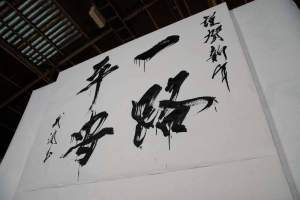 謹賀新年
一路
平安